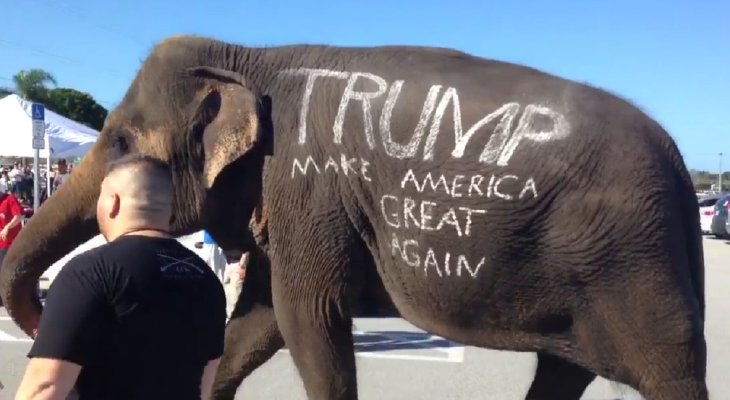 TRUMP
MAKE AMERICA
GREAT
AGAIN